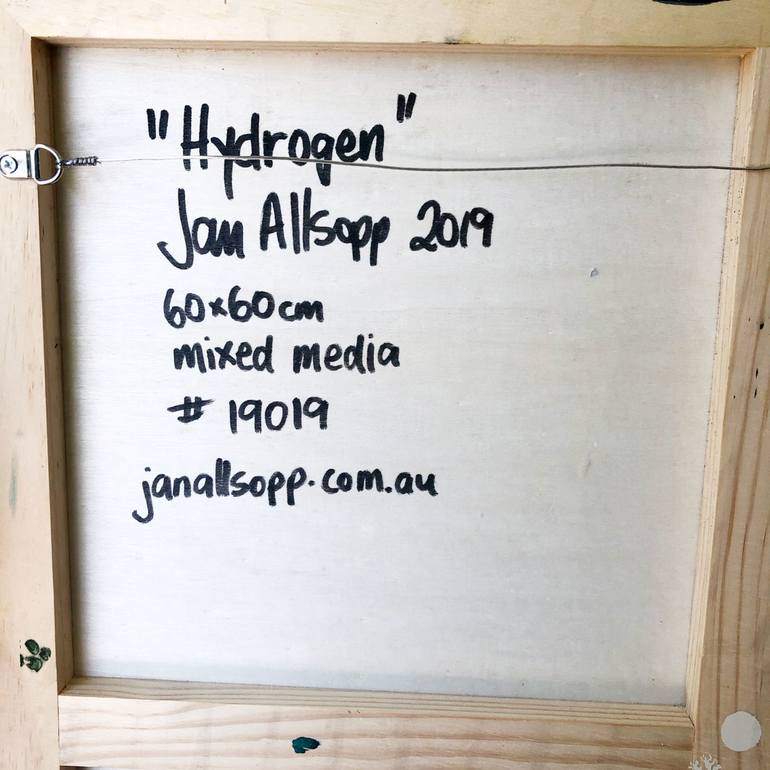 "Hydrogen"
Jan Allsopp 2019
60x60cm
mixed media
# 19019
janallsopp.com.au